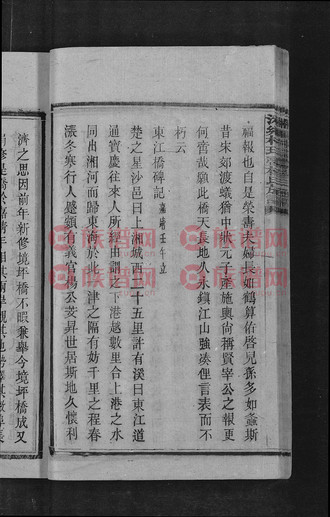 福報也白是榮壽夫婦長如鶴算佑啓兒孫多如螽斯
昔宋郊渡蟻猶中狀元子產施輿尚稱賢宰公之報更
何啻哉願此橋天長地久永鎮江山強湊俚言表而不
朽云
東江橋碑記 壬午立
楚之星沙邑曰上湘城西三十五里許有溪曰東江道
通寶慶往來人所經由之下港越數里合上港之水
同出湘河而歸東海於此一津之隔有妨千里之程春
漲冬寒行人蹙額義官楊公炎昇世居斯地久懷利
濟之思因前年新修境坪橋不暇兼舉今境坪橋成又
族譜网